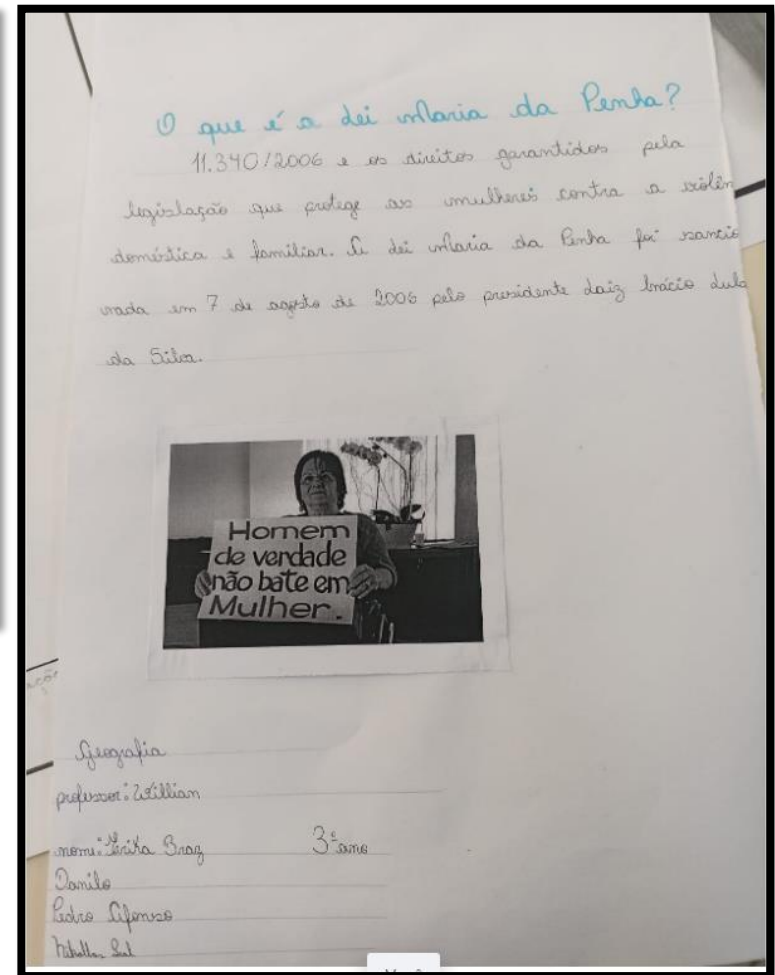 O que é a Lei Maria da Penha?
11.340/2006 e os direitos garantidos pela
legislação que protege as mulheres contra a violên
doméstica e familiar. A Lei Maria da Penha foi sancio
nada em 7 de agosto de 2006 pelo presidente Luiz Inácio Lula
da Silva.
Homem
de verdade
não bate em
Mulher.
Geografia
professor: Willian
nome: Erika Braz 3º ano
Danilo
Pedro Afonso